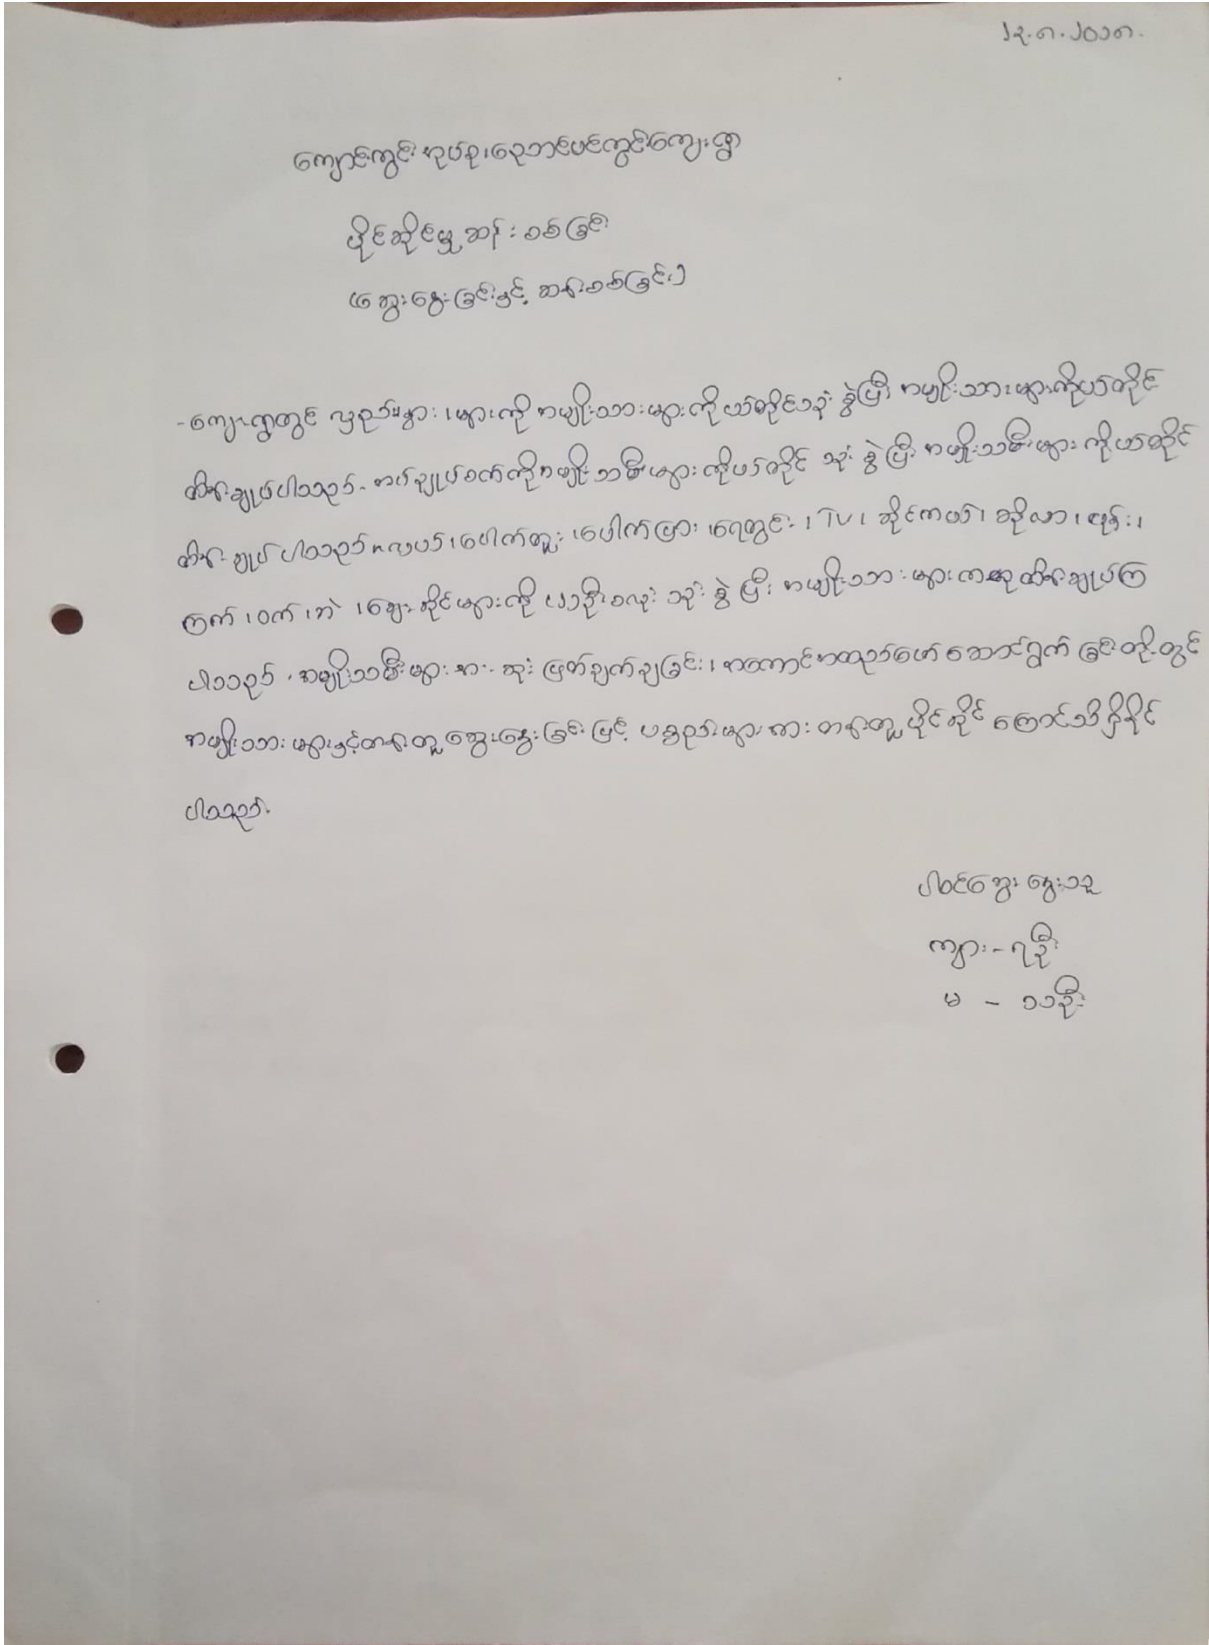 ၂၃.၈.၂၀၁၈.
ကျောင်းကွင်း အုပ်စု၊ ညောင်ပင်ကွင်းကျေးရွာ
ပိုင်ဆိုင်မှု ဆန်း စစ်ခြင်း
(ဆွေးနွေးခြင်းနှင့် ဆန်းစစ်ခြင်း)
- ကျေးရွာတွင် လှည်း၊ နွား ၊ များကို အမျိုးသားများကိုယ်တိုင်သုံး စွဲပြီး အမျိုးသားများကိုယ်တိုင်
ထိန်းချုပ်ပါသည်. အပ်ချုပ်စက်ကိုအမျိုးသမီးများ ကိုယ်တိုင် သုံး စွဲ ပြီး အမျိုးသမီးများ ကိုယ်တိုင်
ထိန်းချုပ် ပါသည်။ လယ်၊ ပေါက်တူး ၊ ပေါက်ပြား ၊ ရေတွင်း ၊ TV ၊ ဆိုင်ကယ်၊ ဆိုလာ ၊ ဖုန်း ၊
ကြက် ၊ ဝက် ၊ ဘဲ ၊ ဈေးဆိုင်များကို ၂ဦးစလုံး သုံး စွဲ ပြီး အမျိုးသား များက ထိန်းချုပ်ကြ
ပါသည် . အမျိုးသမီးများ အား ဆုံး ဖြတ်ချက်ချခြင်း ၊ အကောင်အထည်ဖော် ဆောင်ရွက် ခြင်း တို့ တွင်
အမျိုးသား များနှင့်တန်းတူ ဆွေးနွေးခြင်း ဖြင့် ပစ္စည်းများ အား တန်းတူ ပိုင်ဆိုင် ကြောင်းသိရှိနိုင်
ပါသည်.
ပါဝင်ဆွေး နွေးသူ
ကျား - ၇ဦး
မ - ၁၁ဦး